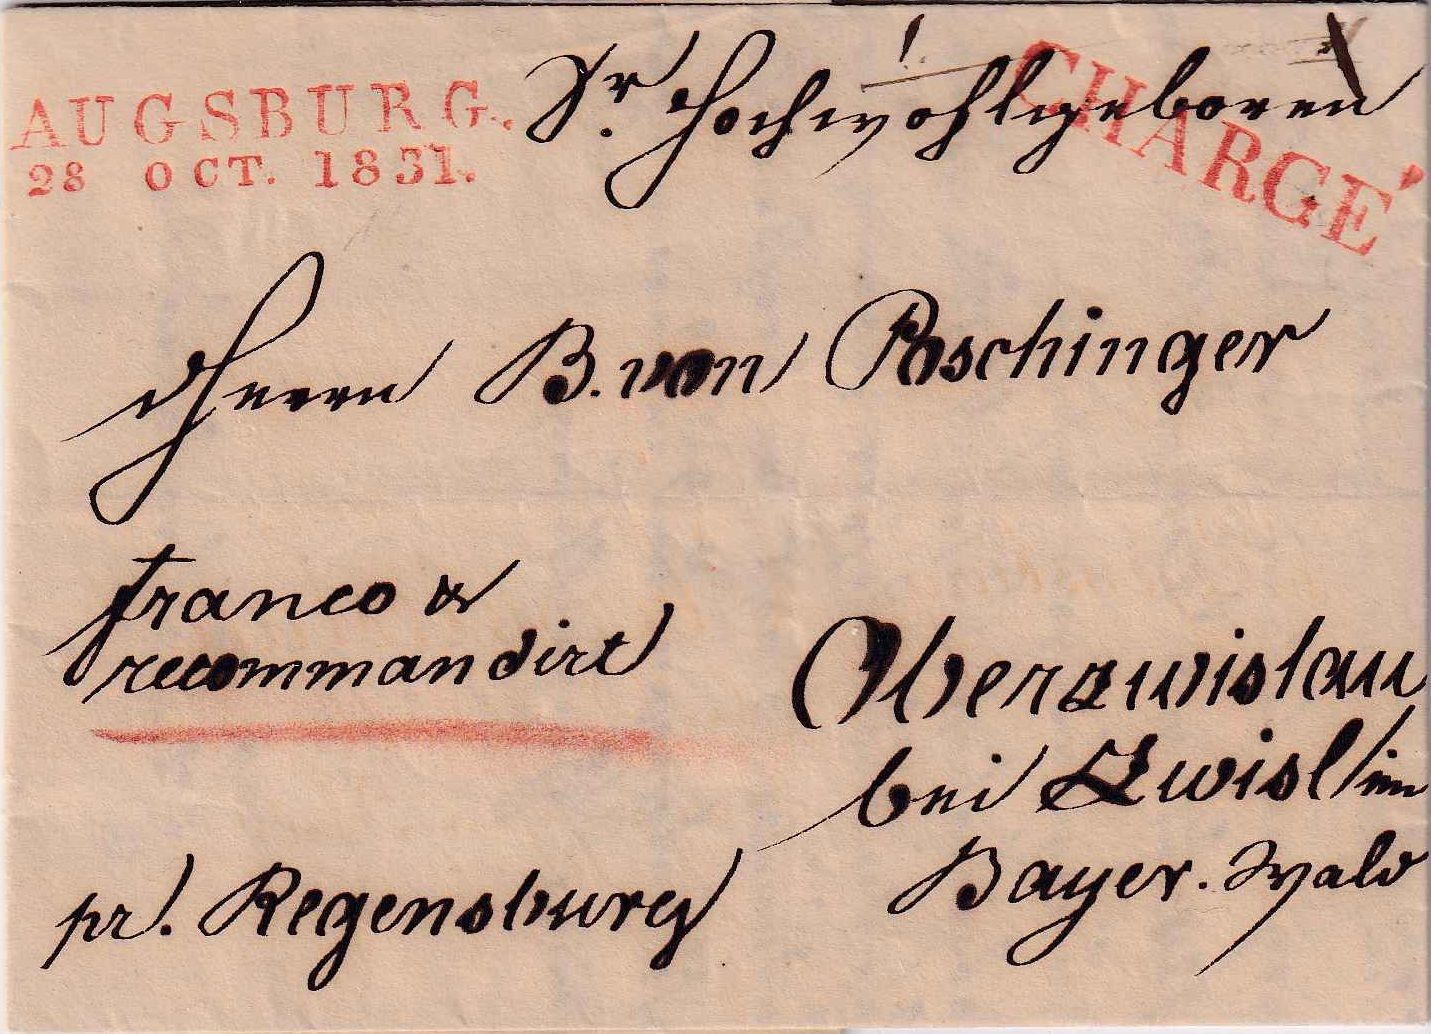 AUGSBURG.
28 OCT. 1831.
CHARGÉ
Sr. Hochwohlgeboren
Herrn B. von Poschinger
franco &
recommandirt
Oberzwislau
bei Zwisl im
Bayer. Wald
pr. Regensburg